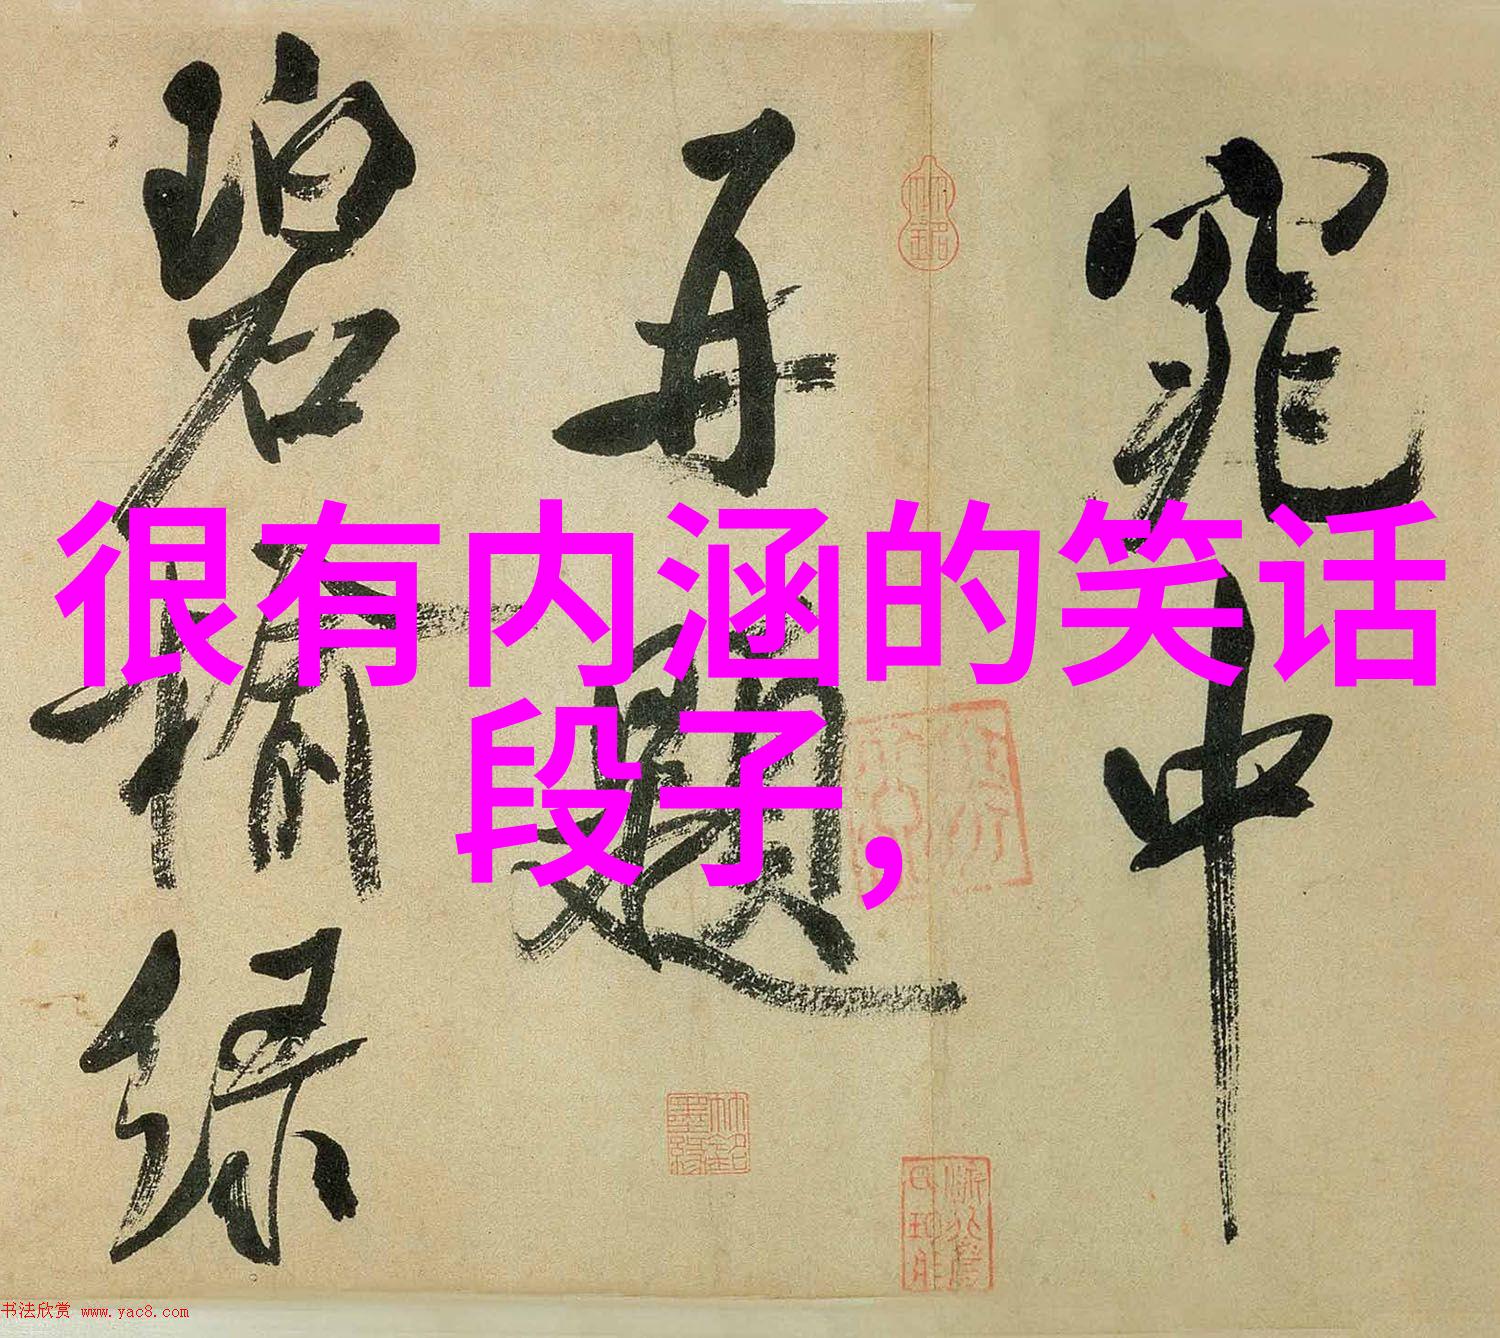 窕中
再題
碧榆綠
很有内涵的笑话
段子,
书法欣赏 www.yac8.com